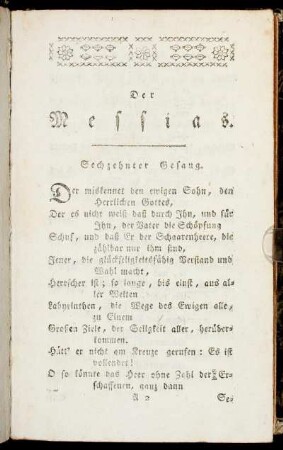 Der
Messias.
Sechzehnter Gesang.
Der miskennet den ewigen Sohn, den
Herrlichen Gottes,
Der es nicht weiß daß durch Ihn, und für
Ihn, der Vater die Schöpfung
Schuf, und daß Er der Schaarenheere, die
zählbar nur ihm sind,
Jener, die glückseligkeitsfähig Verstand und
Wahl macht,
Herrscher ist; so lange, bis einst, aus al-
ler Welten
Labyrinthen, die Wege des Ewigen alle,
zu Einem
Großen Ziele, der Seligkeit aller, herüber-
kommen.
Hätt' er nicht am Kreuze gerufen: Es ist
vollendet!
O so könnte das Heer ohne Zahl der Er-
schaffenen, ganz dann
A 2 Se-